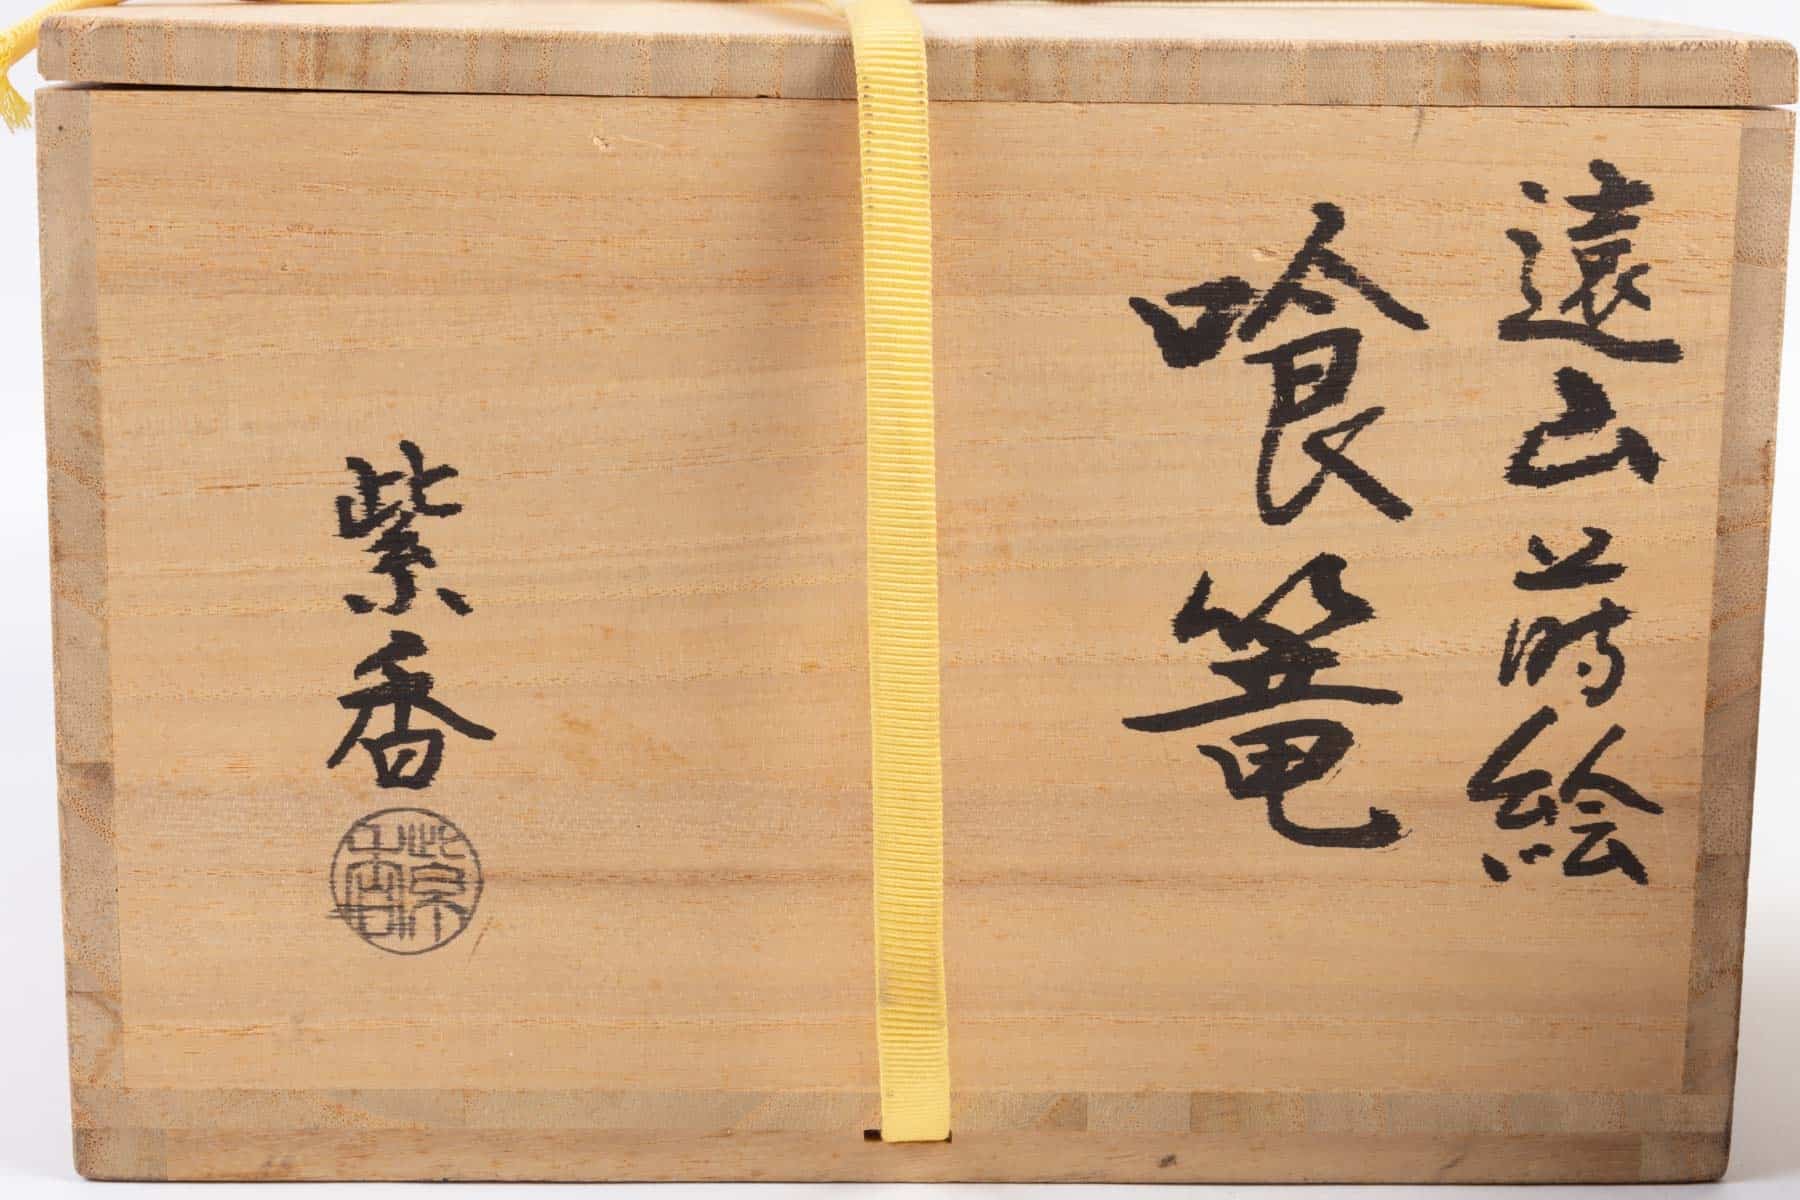 遠山蒔絵
喰篭
紫香